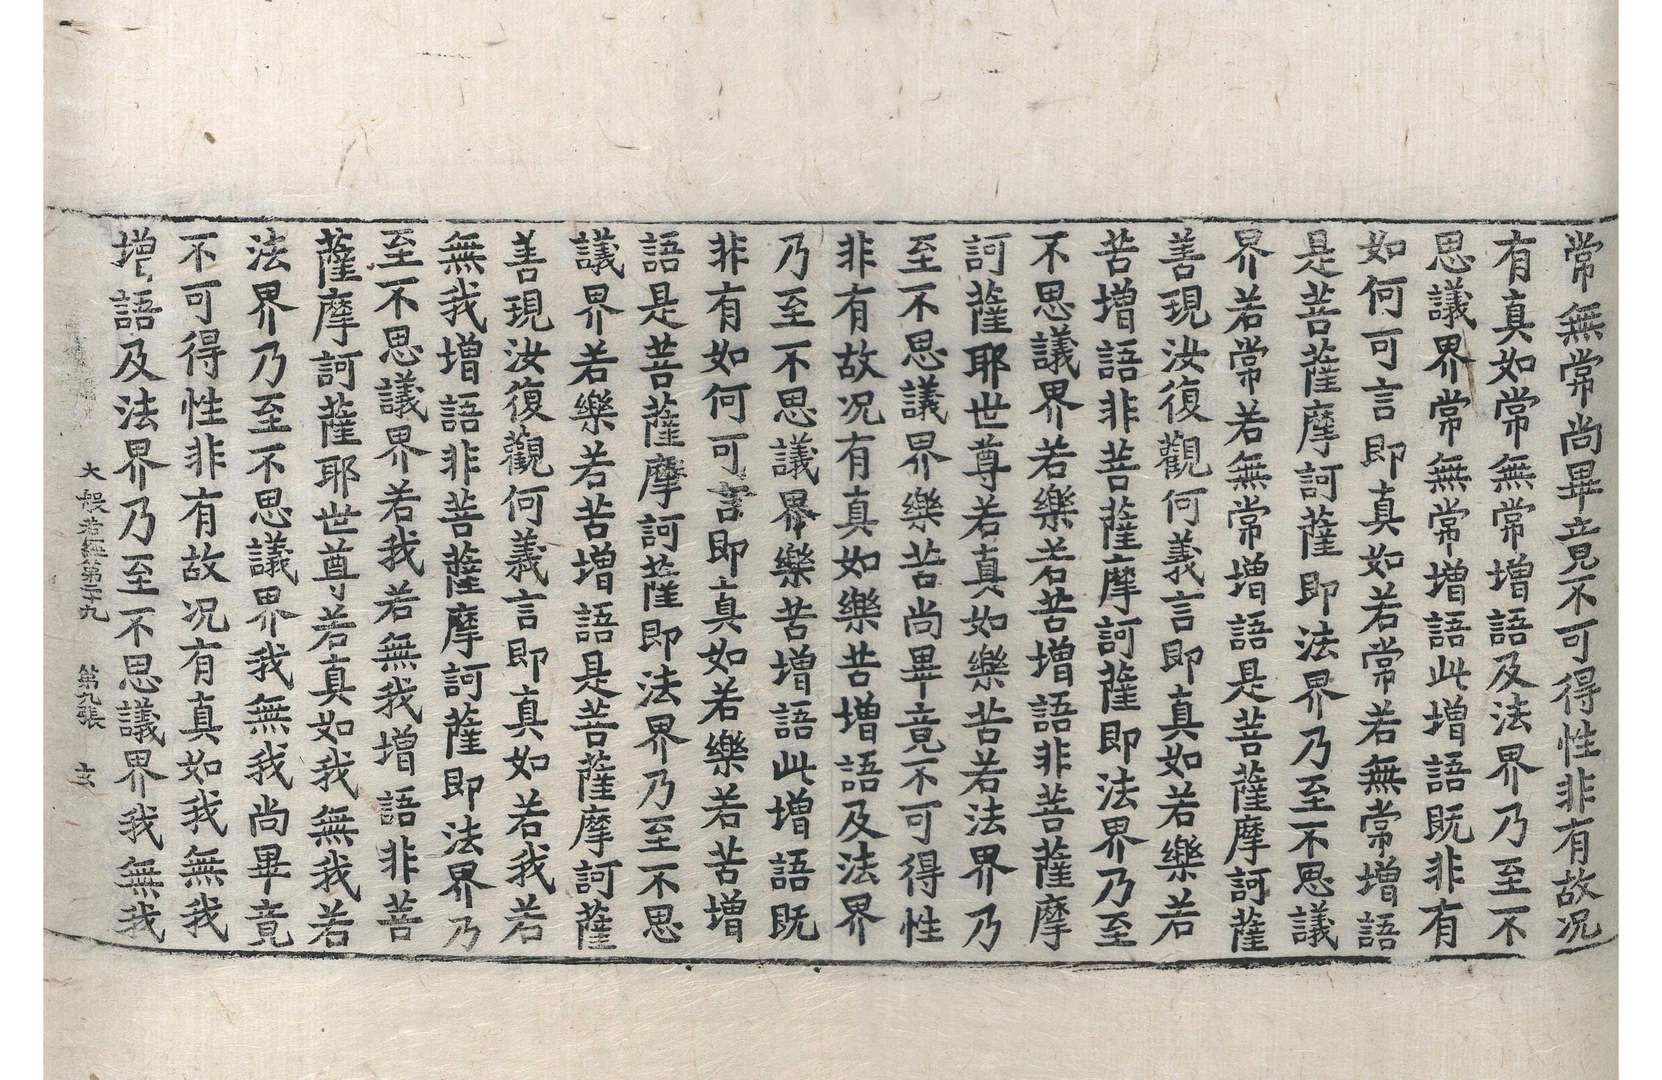 常無常尚畢竟不可得性非有故况
有真如常無常增語及法界乃至不
思議界常無常增語此增語既非有
如何可言即真如若常若無常增語
是菩薩摩訶薩即法界乃至不思議
界若常若無常增語是菩薩摩訶薩
善現汝復觀何義言即真如若樂若
苦增語非菩薩摩訶薩即法界乃至
不思議界若樂若苦增語非菩薩摩
訶薩耶世尊若真如樂苦若法界乃
至不思議界樂苦尚畢竟不可得性
非有故况有真如樂苦增語及法界
乃至不思議界樂苦增語此增語既
非有如何可言即真如若樂若苦增
語是菩薩摩訶薩即法界乃至不思
議界若樂若苦增語是菩薩摩訶薩
善現汝復觀何義言即真如若我若
無我增語非菩薩摩訶薩即法界乃
至不思議界若我若無我增語非菩
薩摩訶薩耶世尊若真如我無我若
法界乃至不思議界我無我尚畢竟
不可得性非有故况有真如我無我
增語及法界乃至不思議界我無我
大般若經第二十九 第九張 玄